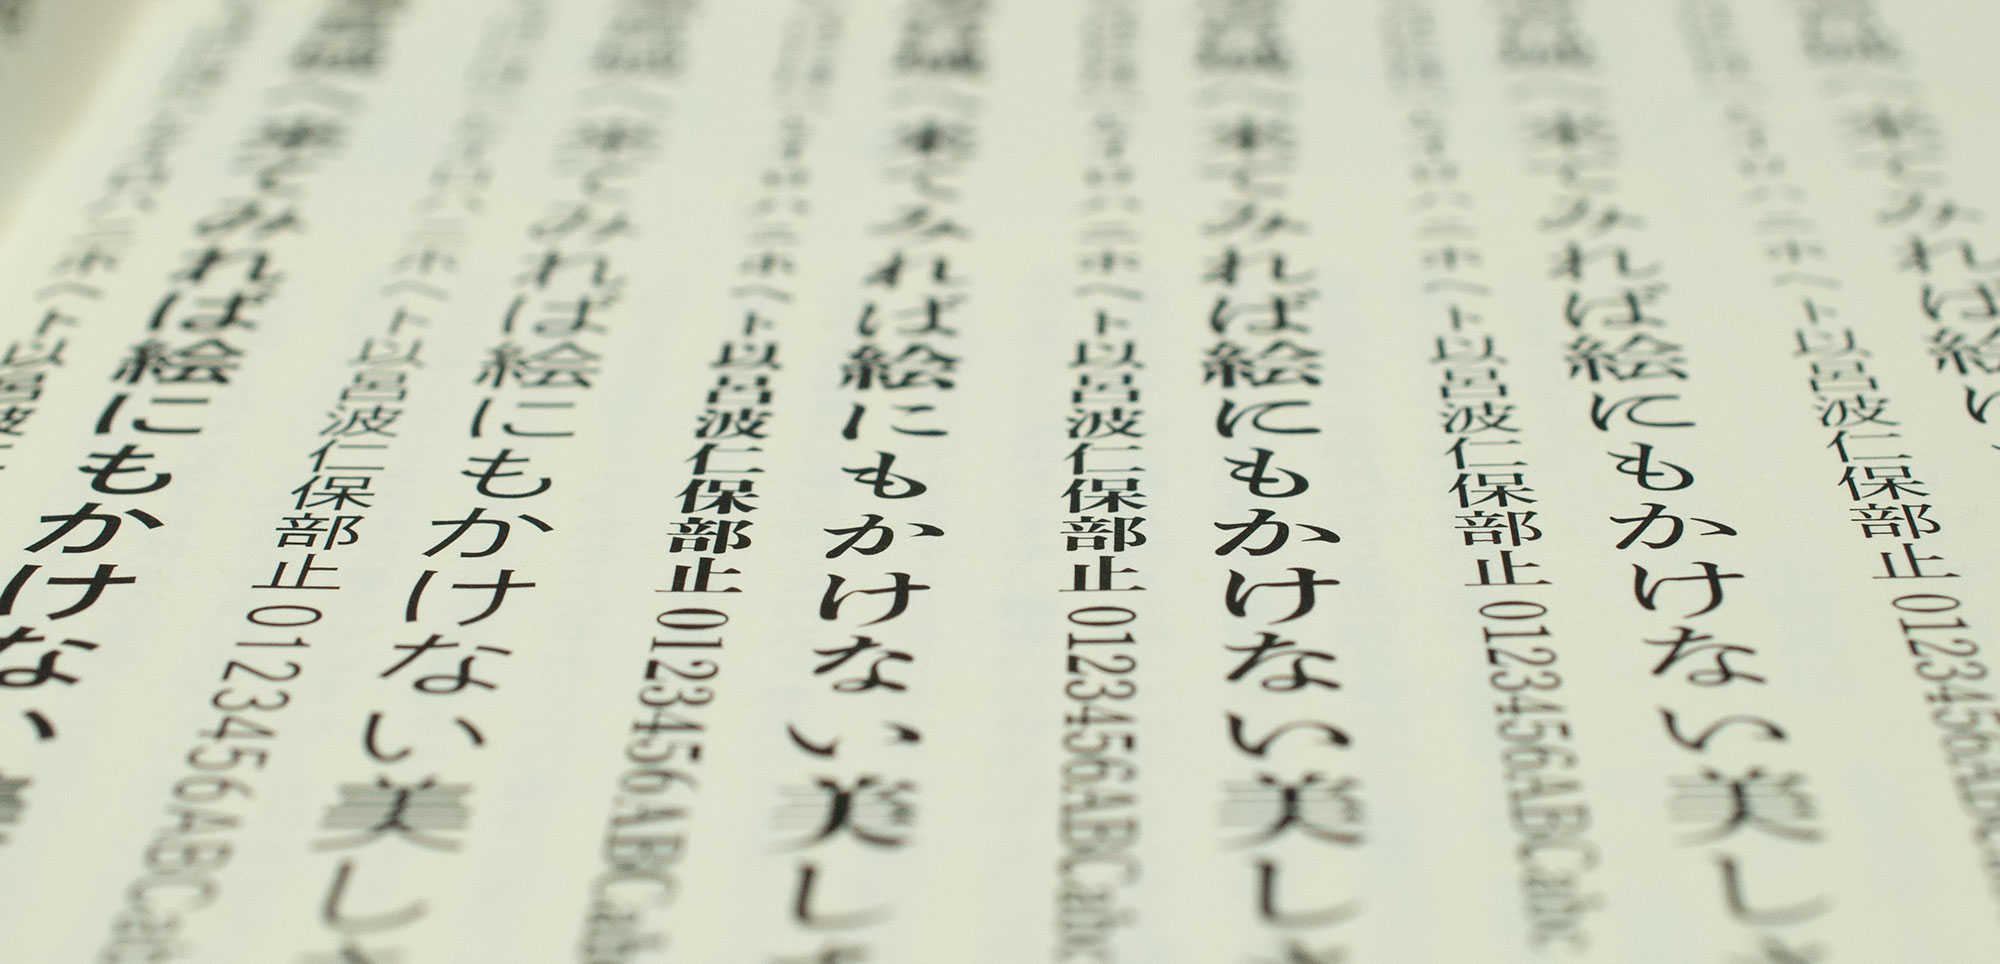 へ来てみれば絵に
ハニホヘト以呂波仁保部止0123456ABCabc
へ来てみれば絵にもかけない美し
ハニホヘト以呂波仁保部止0123456ABCabc
へ来てみれば絵にもかけない美し
ハニホヘト以呂波仁保部止0123456ABCabc
へ来てみれば絵にもかけない美し
ハニホヘト以呂波仁保部止0123456ABCabc
へ来てみれば絵にもかけない美し
ハニホヘト以呂波仁保部止0123456ABCabc
へ来てみれば絵にもかけない
ハニホヘト以呂波仁